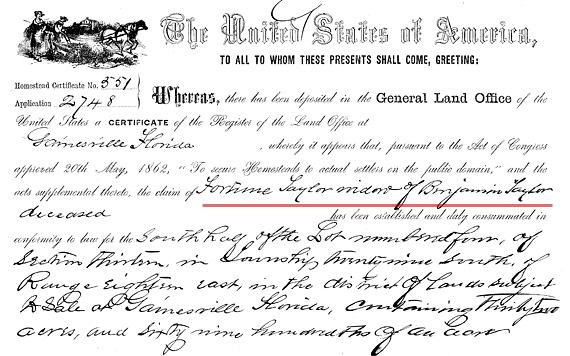 The United States of America,
TO ALL TO WHOM THESE PRESENTS SHALL COME, GREETING:
Homestead Certificate No. 551
Application 2748
Whereas, there has been deposited in the General Land Office of the
United States a CERTIFICATE of the Register of the Land Office at
Gainesville Florida , whereby it appears that, pursuant to the Act of Congress
approved 20th May, 1862, "To secure Homesteads to actual settlers on the public domain," and the
acts supplemental thereto, the claim of Fortune Taylor widow of Benjamin Taylor
deceased has been established and duly consummated in
conformity to law for the South half of the Lot numbered four, of
Section thirteen, in Township twenty nine South, of
Range eighteen east, in the district of Lands subject
to Sale at Gainesville Florida, containing thirty two
acres, and sixty nine hundredths of an acre